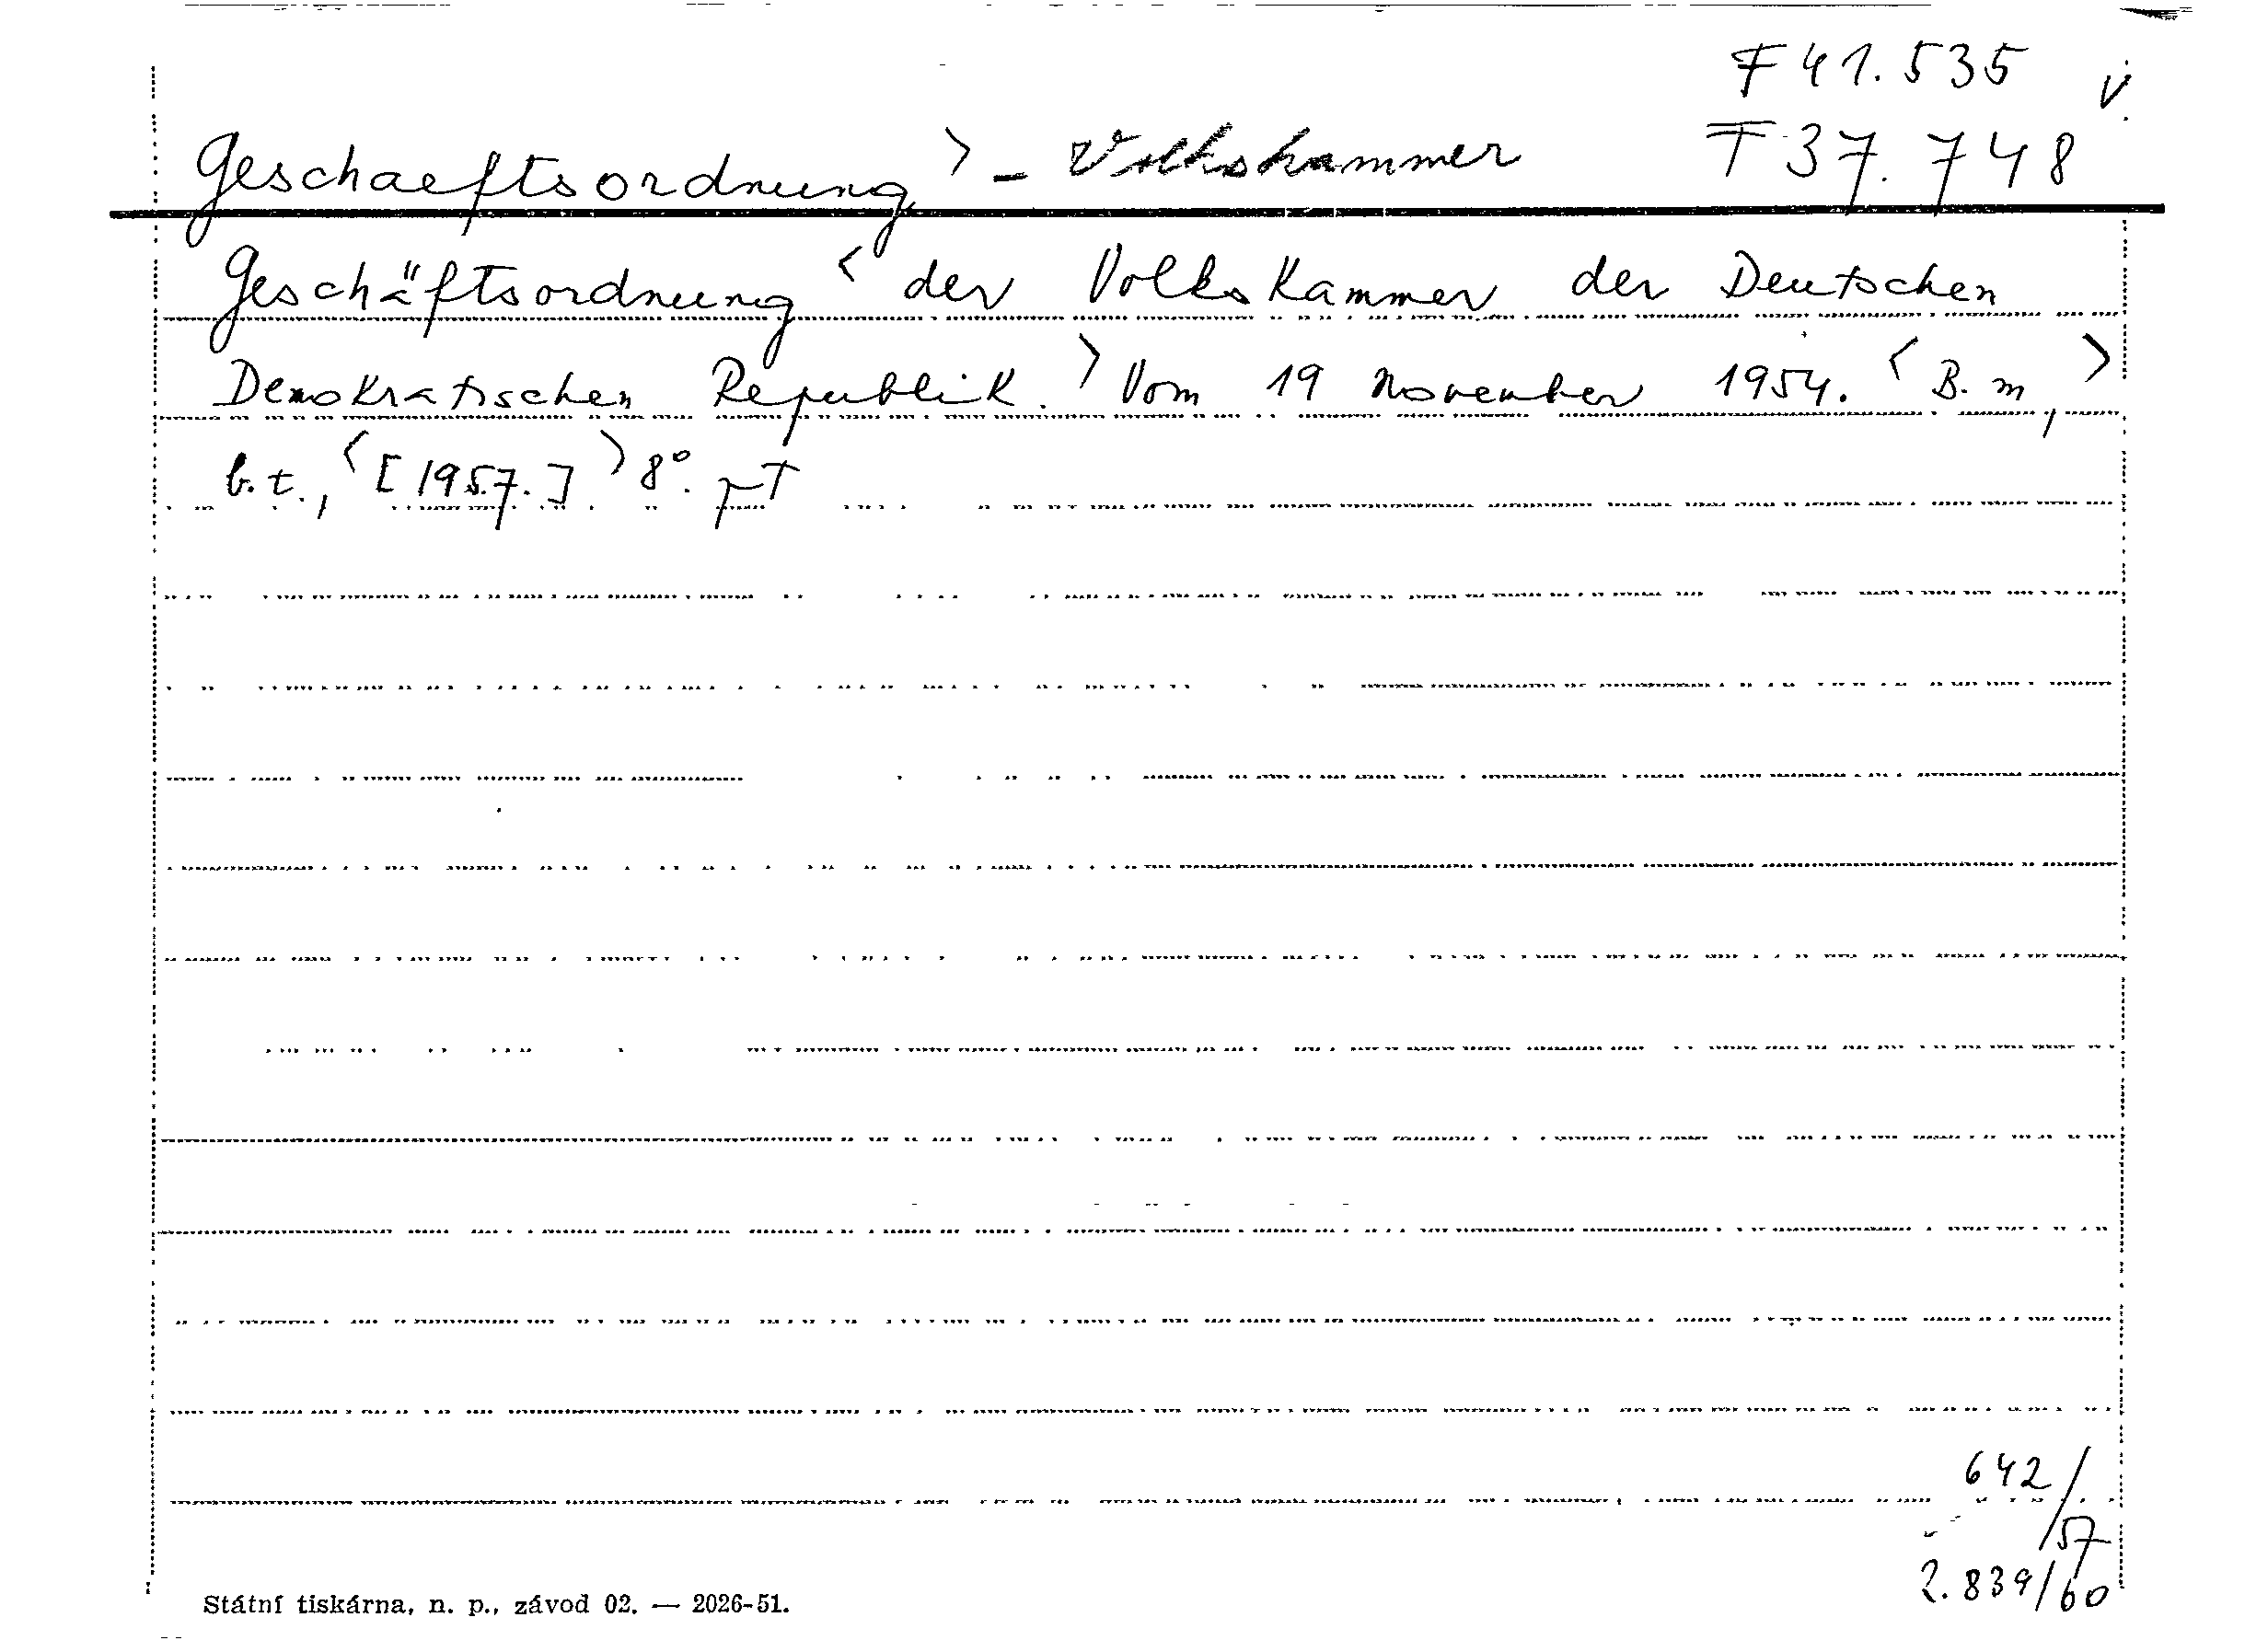 F 41.535 V
Geschaeftsordnung > - Volkskammer T 37.748
Geschäftsordnung < der Volkskammer der Deutschen
Demokratischen Republik. > Vom 19 November 1954. < B. m., >
b. t., < [1957.] > 8°.
642/57
2.839/60
Státní tiskárna, n. p., závod 02. — 2026-51.